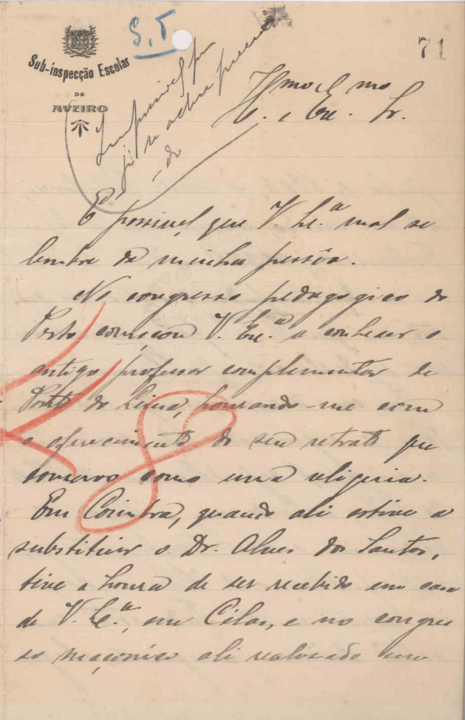 S. T.
71
Sub-inspecção Escolar
DE
AVEIRO
Impossivel por
já se achar preenchi
-do
Illmo e Exmo
C. e Ex. Sr.
É possivel que V. Ex.ª mal se
lembre da minha pessôa.
No congresso pedagogico do
Porto começou V. Ex.ª a conhecer o
antigo professor complementar de
Ponte do Lima, honrando-me com
o offerecimento do seu retrato que
conservo como uma reliquia.
Em Coimbra, quando ali estive a
substituir o Dr. Alves dos Santos,
tive a honra de ser recebido em casa
de V. Ex.ª, em Cellas, e no congres
so maçonico ali realisado em